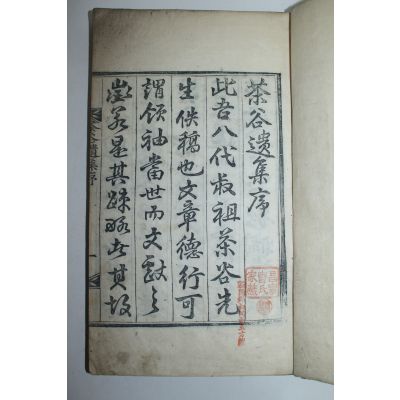 茶谷遺集序
此吾八代叔祖茶谷先
生佚稿也文章德行可
謂領袖當世而文獻之
若是其疎略此其故
茶谷遺集序